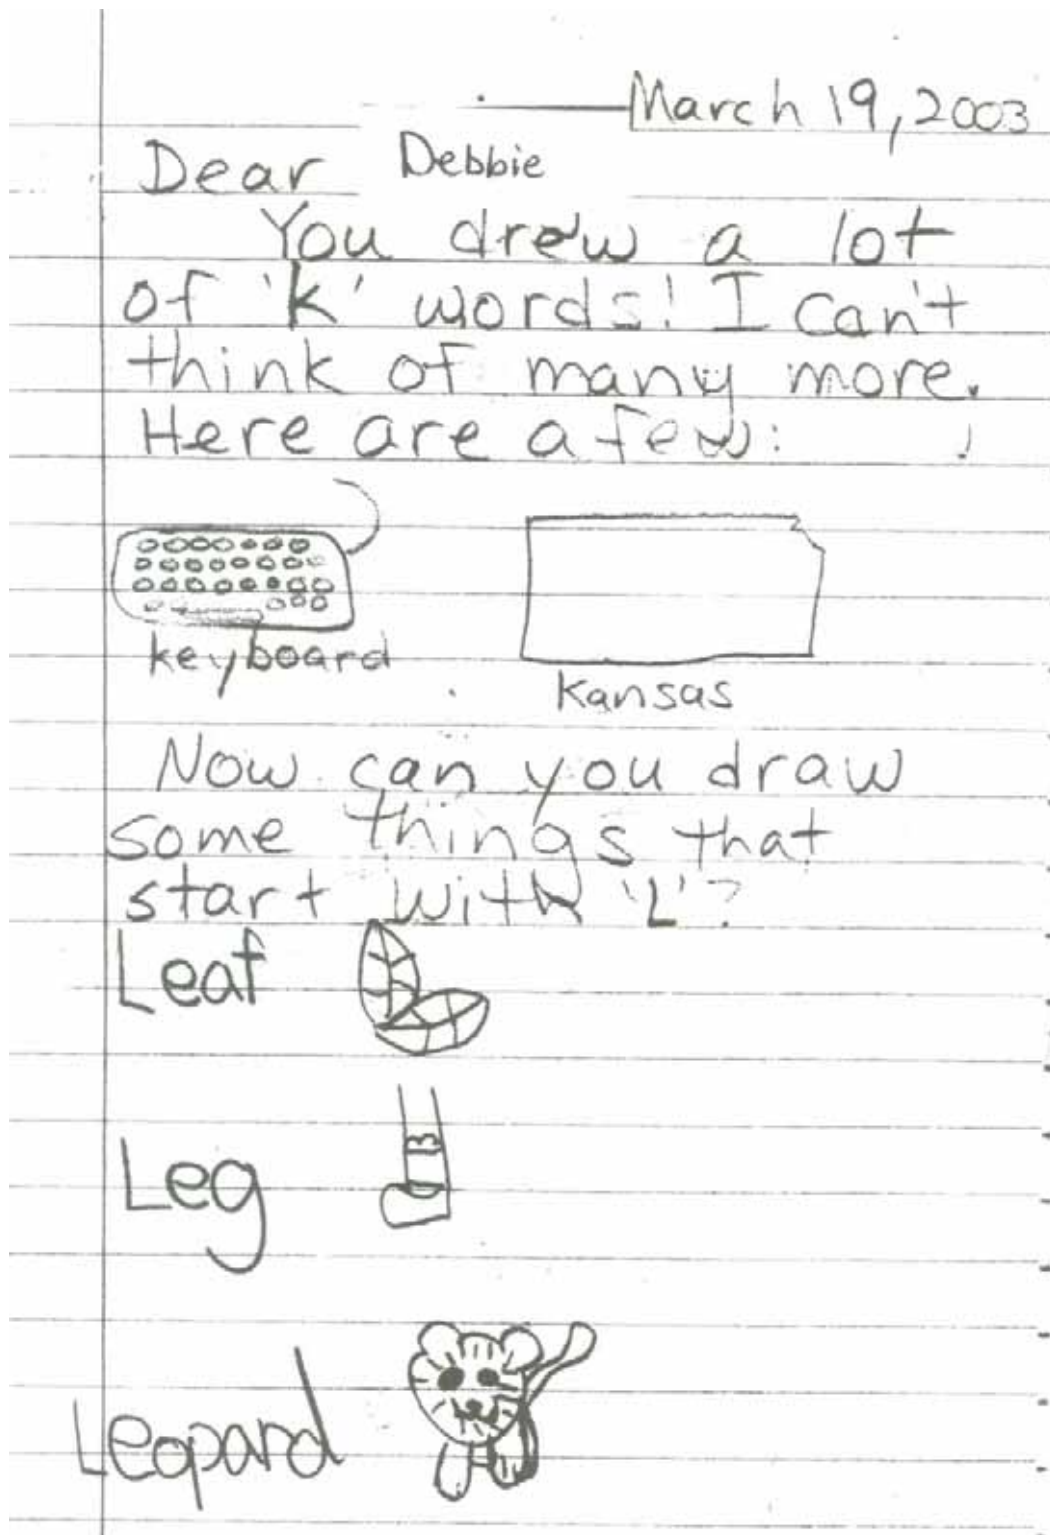 March 19, 2003
Dear Debbie
You drew a lot
of 'k' words! I can't
think of many more.
Here are a few:
keyboard
Kansas
Now can you draw
some things that
start with 'L'?
Leaf
Leg
Leopard